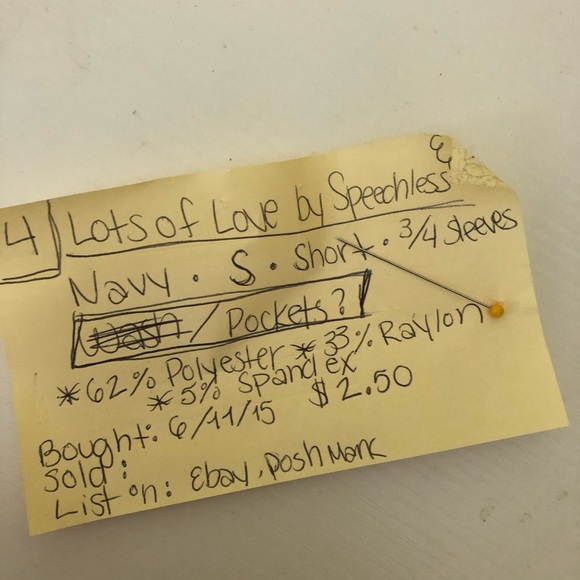 &
4 Lots of Love by Speechless
Navy · S · Short · 3/4 Sleeves
Wash / Pockets?
*62% Polyester * 33% Raylon
*5% Spandex
$2.50
Bought: 6/11/15
Sold:
List on: Ebay, Poshmark